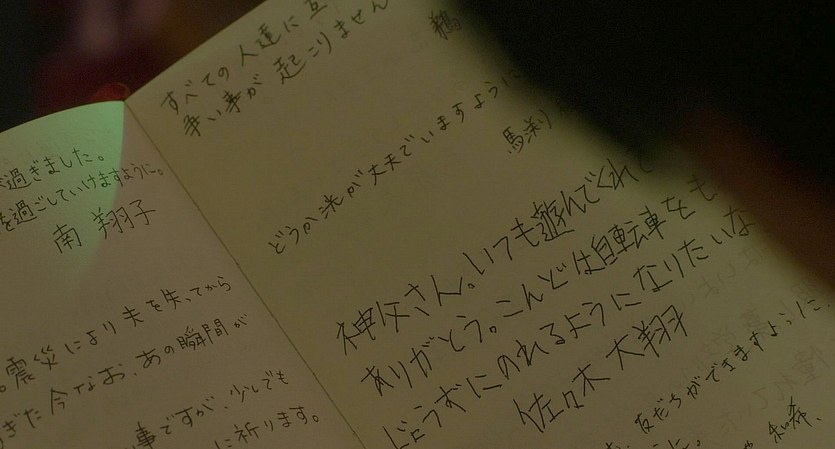 過ぎました。
を過ごしていけますように。
南 翔子
震災により夫を失ってから
きた今なお、あの瞬間が
事ですが、少しでも
に祈ります。
すべての人達に互
争い事が起こりません
どうか洸が丈夫でいますように
馬渕
神父さん。いつも遊んでくれて
ありがとう。こんどは自転車をも
じょうずにのれるようになりたいな
佐々木 大翔
友だちができますように